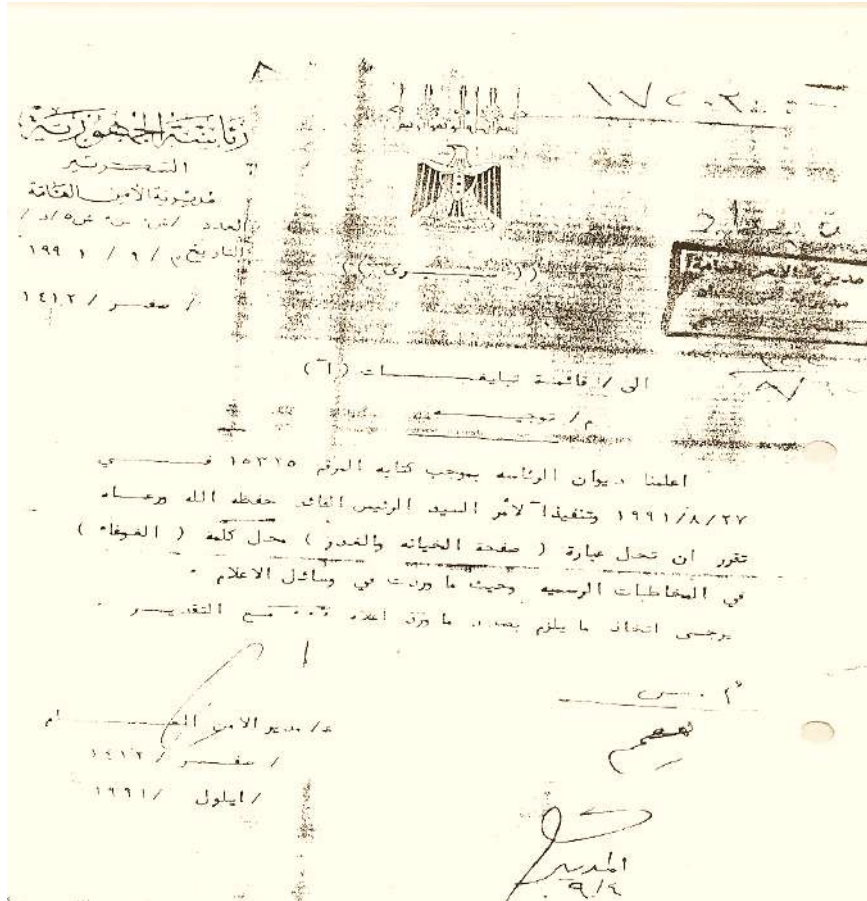 بسم الله الرحمن الرحيم
رئاسة الجمهورية
السكرتير
مديرية الأمن العامة
العدد / ش٥ / د /
التاريخ م / ٩ / ١٩٩١
/ صفر / ١٤١٢
مديرية الامن العامة
مديرية
الى / قائمة تبليغــات (آ)
م / توجيــه
اعلمنا ديوان الرئاسه بموجب كتابه المرقم ١٥٣٢٥ فــي
١٩٩١/٨/٢٧ وتنفيذا لأمر السيد الرئيس القائد حفظه الله ورعــاه
تقرر ان تحل عبارة ( صفحة الخيانه والغدر ) محل كلمة ( الغوغاء )
في المخاطبات الرسميه وحيث ما وردت في وسائل الاعلام .
يرجــى اتخاذ ما يلزم بصدد ما ورد اعلاه ... مــع التقديــر .
ع/ مدير الأمن العــــام
/ صفــر / ١٤١٢
/ ايلول / ١٩٩١
يعمم
المدير
٩/٤